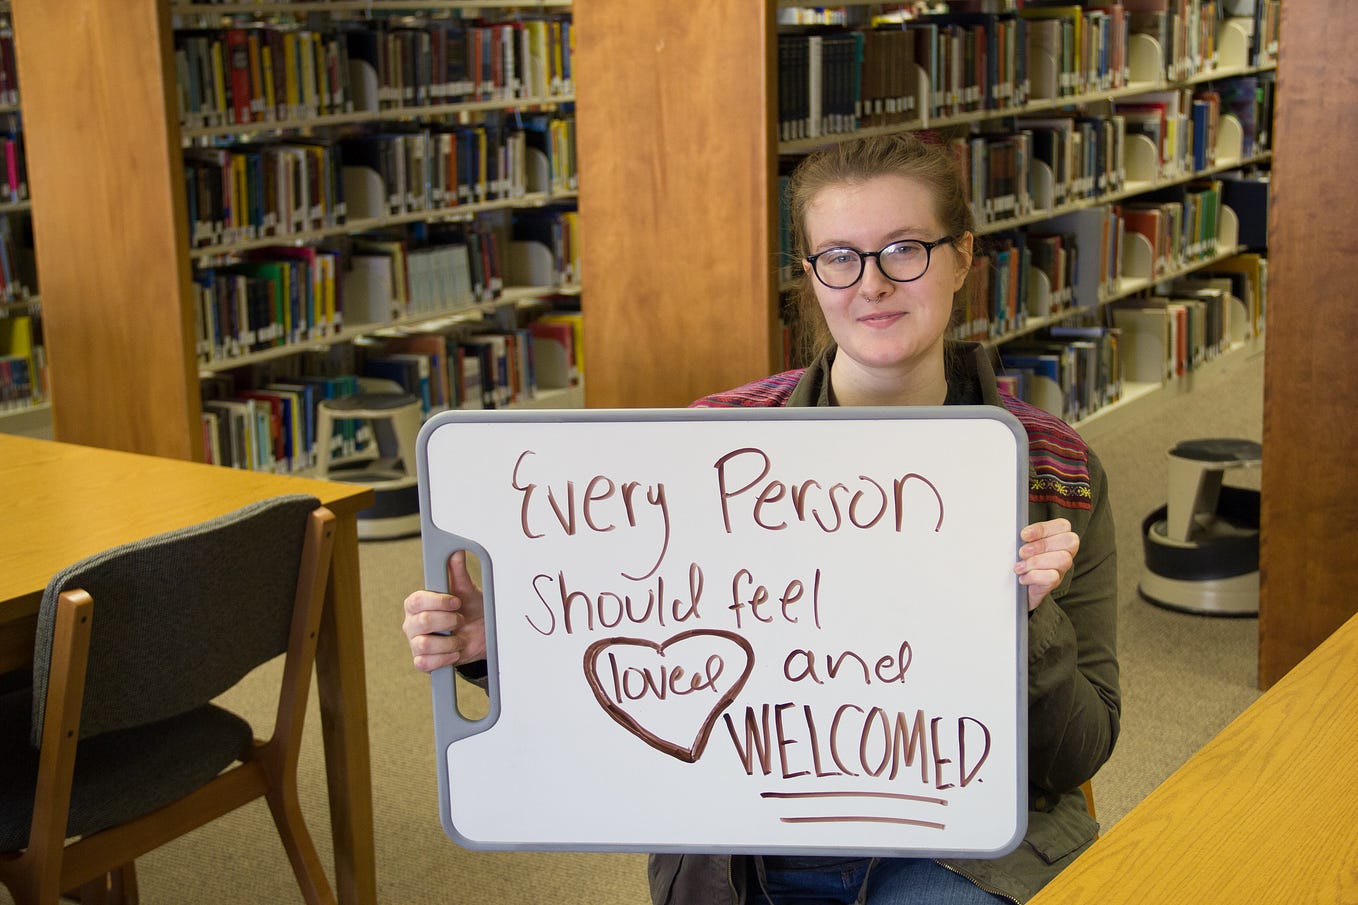 Every Person
should feel
loved and
WELCOMED.